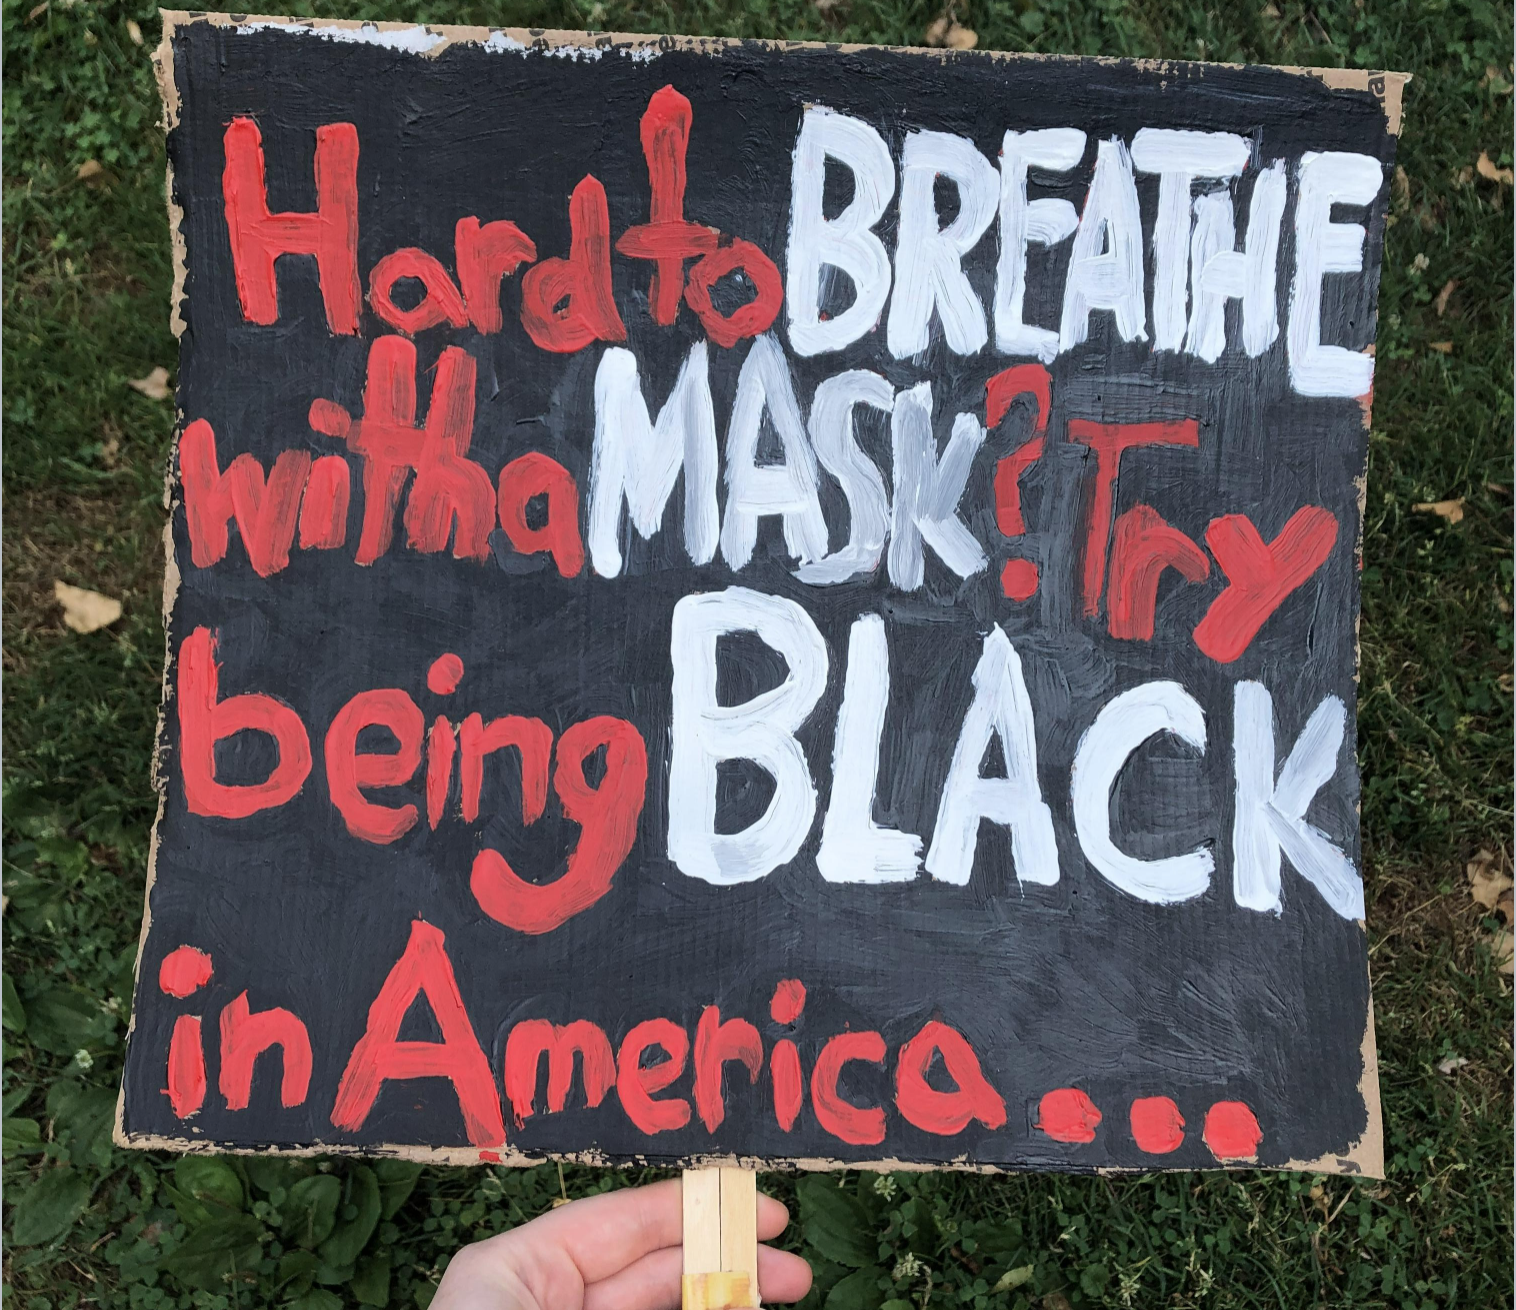 Hard to BREATHE
with a MASK? Try
being BLACK
in America...